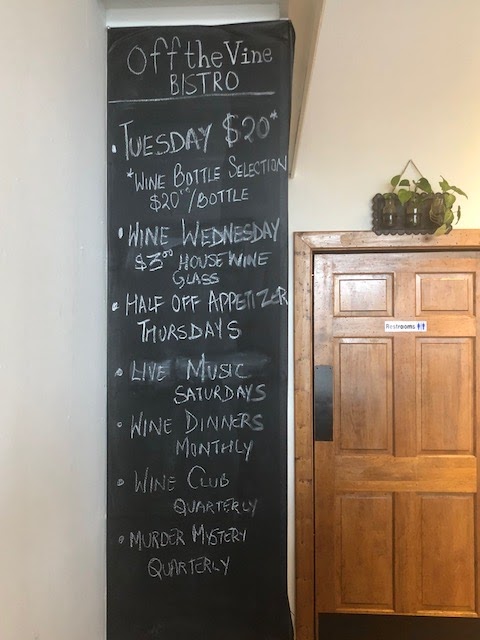 Off the Vine
BISTRO
• TUESDAY $20*
*WINE BOTTLE SELECTION
$20.00/BOTTLE
• WINE WEDNESDAY
$3.00 HOUSE WINE
GLASS
• HALF OFF APPETIZER
THURSDAYS
• LIVE MUSIC
SATURDAYS
• WINE DINNERS
MONTHLY
• WINE CLUB
QUARTERLY
• MURDER MYSTERY
QUARTERLY
Restrooms